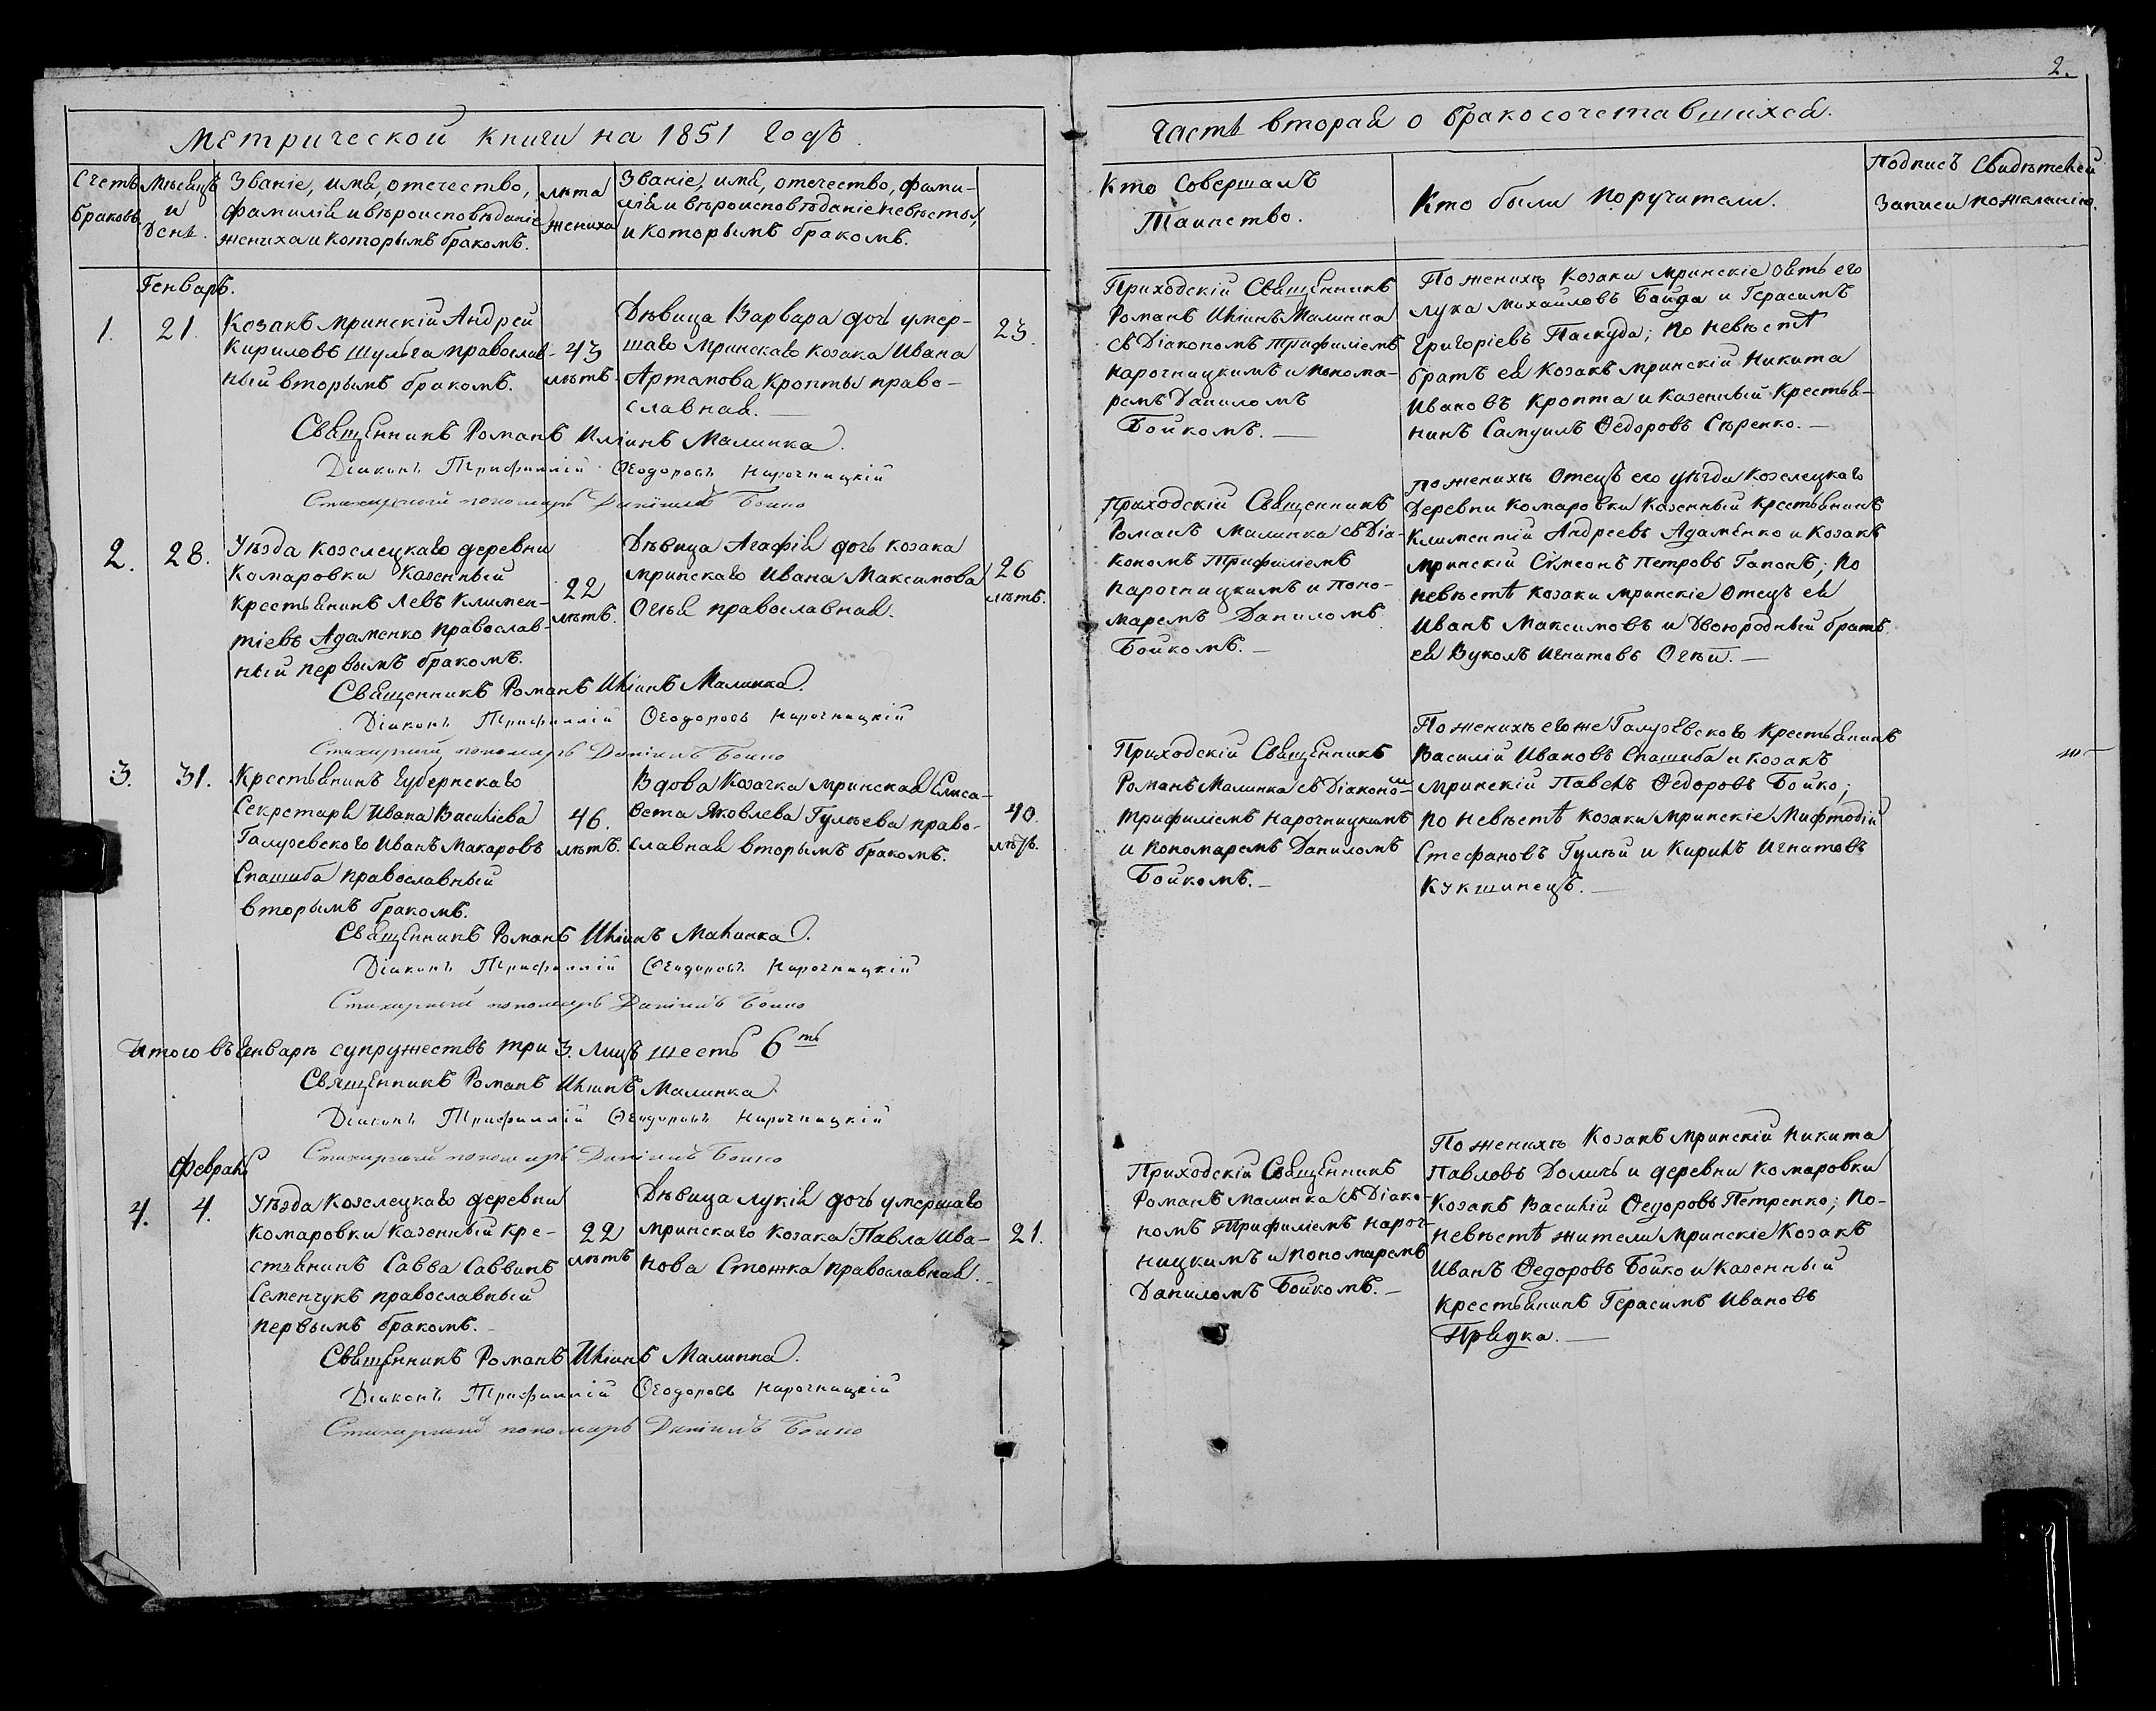 2.
Метрической книги на 1851 годъ.
Часть вторая о бракосочетавшихся.
Счетъ браковъ
Мѣсяцъ и День.
Званіе, имя, отечество,
фамилія и вѣроисповѣданіе
жениха и которымъ бракомъ.
лѣта жениха
Званіе, имя, отечество, фами-
лія и вѣроисповѣданіе невѣсты,
и которымъ бракомъ.
Кто Совершалъ
Таинство.
Кто были поручители.
Подпись Свидѣтелей
записи по желанію.
Генварь.
1. 21.
Козакъ Мринскій Андрей
Кириловъ Шульга православ-
ный вторымъ бракомъ.
43
лѣтъ.
Дѣвица Варвара дочь умер-
шаго Мринскаго козака Ивана
Артамова Кропты право-
славная.
23.
Приходскій Священникъ
Романъ Иліинъ Малинка
съ Діакономъ Трифиліемъ
Нарочницкимъ и понома-
ремъ Даниломъ
Бойкомъ.
По женихѣ Козаки Мринскіе
Лука Михайловъ Байда и Герасимъ
Григоріевъ Паскуда; по невѣстѣ
братъ ея Козакъ Мринскій Никита
Ивановъ Кропта и казенный Крестья-
нинъ Самуилъ Ѳедоровъ Сѣренко.
Священникъ Романъ Иліинъ Малинка.
Діаконъ Трифиллій Ѳеодоровъ Нарочницкій
Стихирный пономарь Даніилъ Бойко
2. 28.
Уѣзда Козелецкаго деревни
Комаровки Казенный
Крестьянинъ Левъ Климен-
тіевъ Адаменко Православ-
ный первымъ бракомъ.
22
лѣтъ.
Дѣвица Агафія дочь козака
Мринскаго Ивана Максимова
Огнья православная.
26
лѣтъ.
Приходскій Священникъ
Романъ Малинка съ Діа-
кономъ Трифиліемъ
Нарочницкимъ и Поно-
маремъ Даниломъ
Бойкомъ.
По женихѣ Отецъ его уѣзда Козелецкаго
Деревни Комаровки Казенный Крестьянинъ
Климентій Андреевъ Адаменко и Козакъ
Мринскій Сімеонъ Петровъ Гапонъ; По
невѣстѣ козаки Мринскіе Отецъ ея
Иванъ Максимовъ и Двоюродный братъ
ея Вуколъ Игнатовъ Огнѣй.
Священникъ Романъ Иліинъ Малинка.
Діаконъ Трифиллій Ѳеодоровъ Нарочницкій
Стихирный пономарь Даніилъ Бойко
3. 31.
Крестьянинъ Губернскаго
Секретаря Ивана Василіева
Галузевского Иванъ Макаровъ
Спашиба православный
вторымъ бракомъ.
46.
лѣтъ.
Вдова Козачка Мринская Елиса-
вета Яковлева Гулѣева право-
славная вторымъ бракомъ.
40.
лѣтъ.
Приходскій Священникъ
Романъ Малинка съ Діакономъ
Трифиліемъ Нарочницкимъ
и Пономаремъ Даниломъ
Бойкомъ.
По женихѣ его же Галузевского Крестьянинъ
Василій Ивановъ Спашиба и козакъ
Мринскій Павелъ Ѳедоровъ Бойко;
по невѣстѣ козаки Мринскіе Мифтодій
Стефановъ Гулѣй и Кирилъ Игнатовъ
Кукшинецъ.
Священникъ Романъ Иліинъ Малинка.
Діаконъ Трифиллій Ѳеодоровъ Нарочницкій
Стихирный пономарь Даніилъ Бойко
Итого въ Генварѣ супружествъ три 3. лицъ шесть 6ть
Священникъ Романъ Иліинъ Малинка.
Діаконъ Трифиллій Ѳеодоровъ Нарочницкій
Стихирный пономарь Даніилъ Бойко
Февраль
4. 4.
Уѣзда Козелецкаго деревни
Комаровки казенный Кре-
стьянинъ Савва Саввинъ
Семенчукъ православный
первымъ бракомъ.
22
лѣтъ
Дѣвица Лукія дочь умершаго
Мринскаго Козака Павла Ива-
нова Стожка православная.
21.
Приходскій Священникъ
Романъ Малинка съ Діако-
номъ Трифиліемъ Нароч-
ницкимъ и пономаремъ
Даниломъ Бойкомъ.
По женихѣ Козакъ Мринскій Никита
Павловъ и деревни Комаровки
Козакъ Василій Ѳедоровъ Петренко; По-
невѣстѣ жители Мринскіе Козакъ
Иванъ Ѳедоровъ Бойко и Казенный
Крестьянинъ Герасимъ Ивановъ
Прядка.
Священникъ Романъ Иліинъ Малинка.
Діаконъ Трифиллій Ѳеодоровъ Нарочницкій
Стихирный пономарь Даніилъ Бойко